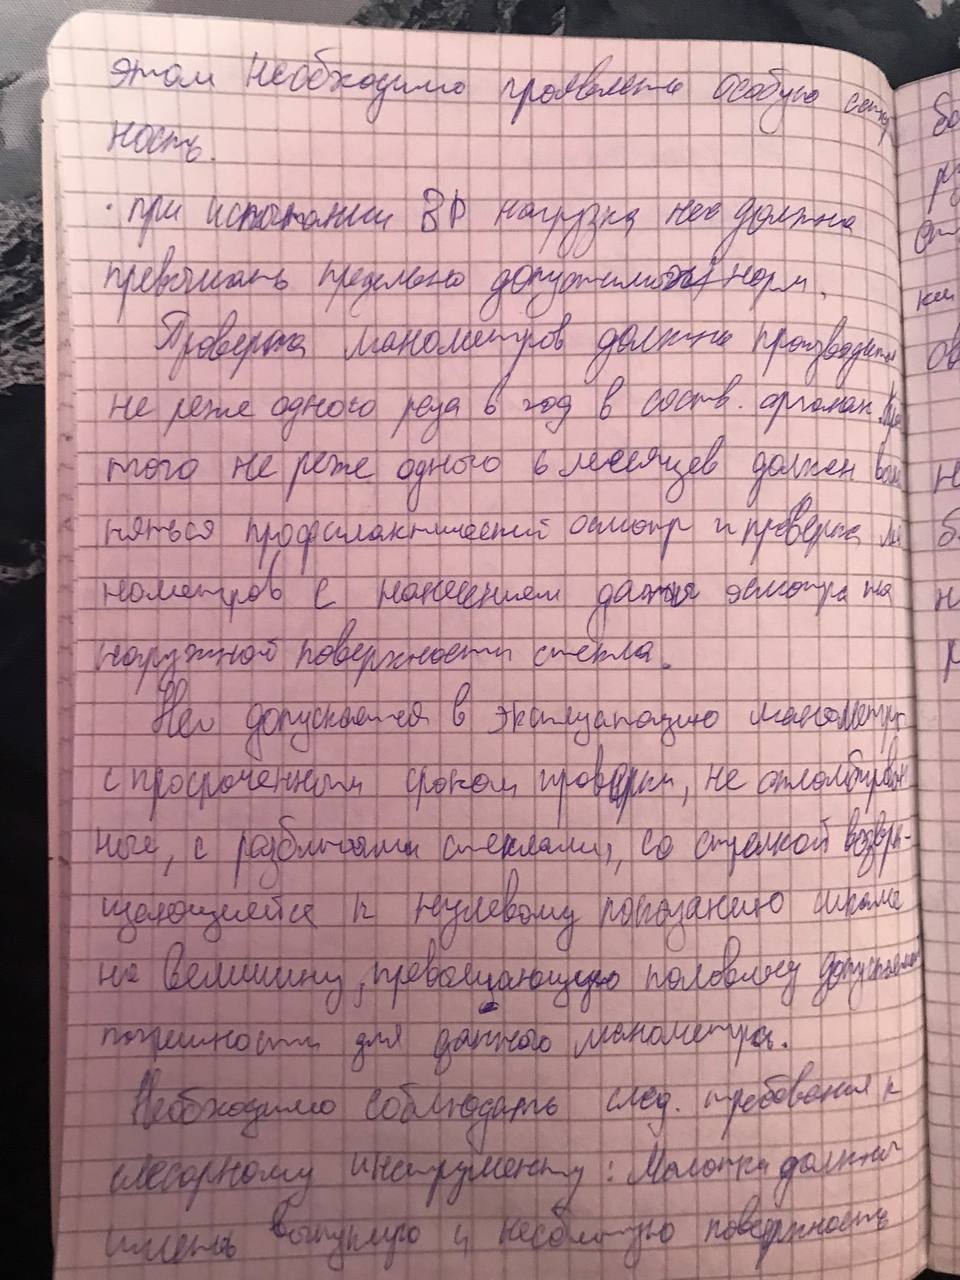 этом необходимо проявлять особую
ность.
· при испытании ВД нагрузка не должна
превышать предельно допустимых норм.
Проверка манометров должна производится
не реже одного раза в год в соотв. органах.
того не реже одного 6 месяцев должен вып
няться профилактический осмотр и проверка ма
нометров с нанесением даты осмотра на
наружной поверхности стекла.
Не допускается в эксплуатацию манометры
с просроченным сроком проверки, не опломбирован
ные, с разбитыми стеклами, со стрелкой возвра-
щающейся к нулевому показанию шкалы
на величину, превышающую половину допускаемой
погрешности для данного манометра.
Необходимо соблюдать след. требования к
слесарному инструменту: Молотки должны
иметь выпуклую и несбитую поверхность